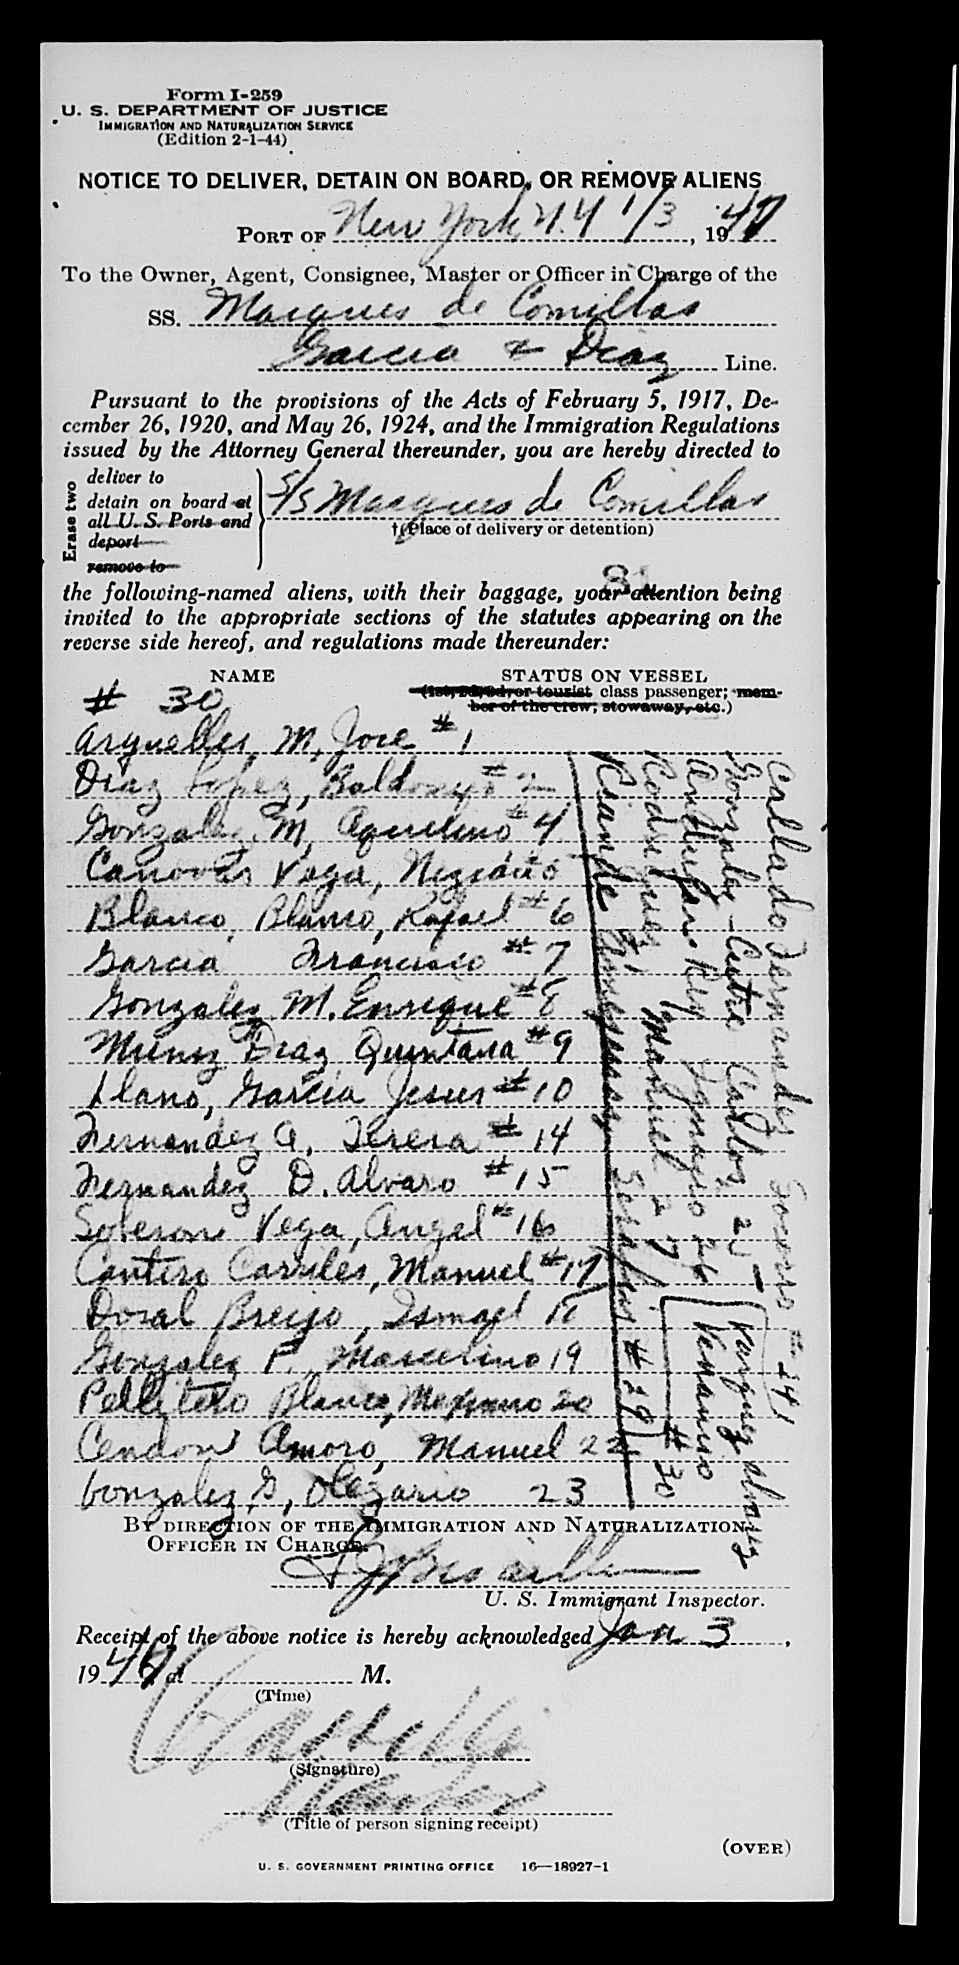 Form I-259
U. S. DEPARTMENT OF JUSTICE
IMMIGRATION AND NATURALIZATION SERVICE
(Edition 2-1-44)
NOTICE TO DELIVER, DETAIN ON BOARD, OR REMOVE ALIENS
PORT OF New York N.Y 1/3, 1947
To the Owner, Agent, Consignee, Master or Officer in Charge of the
SS. Marques de Comillas
Garcia & Diaz Line.
Pursuant to the provisions of the Acts of February 5, 1917, De-
cember 26, 1920, and May 26, 1924, and the Immigration Regulations
issued by the Attorney General thereunder, you are hereby directed to
Erase two
deliver to
detain on board at
all U. S. Ports and
deport
remove to
S/S Marques de Comillas
†(Place of delivery or detention)
81
the following-named aliens, with their baggage, your attention being
invited to the appropriate sections of the statutes appearing on the
reverse side hereof, and regulations made thereunder:
NAME STATUS ON VESSEL
(1st, 2d, 3d, or tourist class passenger; mem-
ber of the crew, stowaway, etc.)
# 30
Arguelles, M, Jose #1
Diaz Lopez, #2
Gonzalez, M, Aquilino #4
Vega, 5
Blanco, Blanco, Rafael #6
Garcia Francisco #7
Gonzalez M. Enrique #8
Muniz Diaz Quintana #9
Llano, Garcia Jesus #10
Fernandez A, Teresa #14
Fernandez D. Alvaro #15
Soberon Vega, Angel #16
Cantero Carriles, Manuel #17
Doval Breijo, Ismael 18
Gonzalez F. Marcelino 19
Pellitero Blanco, Maximo 20
Cendon Amoro, Manuel 22
Gonzalez, G, Olegario 23
Collado Fernandez Socorro #24
Gonzalez-Castro Carlos 25
Rey Ignacio 26
Rodriguez F, Manuel 27
#29
Vazquez Alvarez
Venancio
#30
BY DIRECTION OF THE IMMIGRATION AND NATURALIZATION
OFFICER IN CHARGE.
U. S. Immigrant Inspector.
Receipt of the above notice is hereby acknowledged Jan 3,
1947 at M.
(Time)
(Signature)
Master
(Title of person signing receipt)
(OVER)
U. S. GOVERNMENT PRINTING OFFICE 16—18927-1